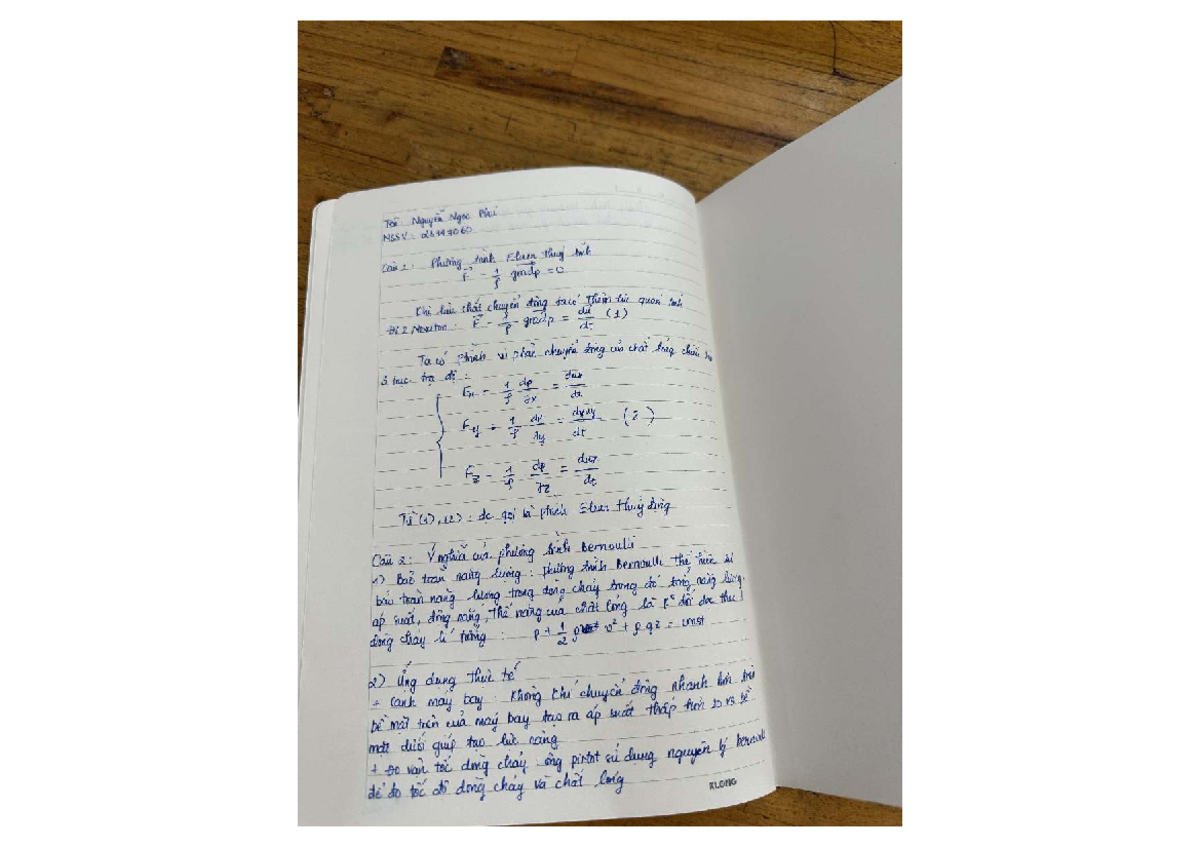 Tên: Nguyễn Ngọc
MSSV:
Câu 1: Phương trình Euler thuỷ tĩnh
F - 1/ρ gradp = 0
Khi lưu chất chuyển động ta có thêm lực quán tính
Đl 2 Newton: F - 1/ρ gradp = du/dt (1)
Ta có ptrình vi phân chuyển động của chất lỏng chiếu
3 trục tọa độ:
Fx - 1/ρ dp/∂x = dux/dt
Fy - 1/ρ dp/∂y = duy/dt (2)
Fz - 1/ρ dp/∂z = duz/dt
Từ (1), (2): đc gọi là ptrình Euler thuỷ động
Câu 2: Ý nghĩa của phương trình Bernoulli
1) Bảo toàn năng lượng: phương trình Bernoulli thể hiện sự
bảo toàn năng lượng trong dòng chảy trong đó tổng năng lượng
áp suất, động năng, thế năng của chất lỏng là k° đổi dọc theo
dòng chảy lí tưởng: p + 1/2 ρ v² + ρgz = const
2) Ứng dụng thực tế
+ Cánh máy bay: Không khí chuyển động nhanh hơn trên
bề mặt trên của máy bay tạo ra áp suất thấp hơn so vs bề
mặt dưới giúp tạo lực nâng
+ Đo vận tốc dòng chảy ống pirtot sử dụng nguyên lý bernoulli
để đo tốc độ dòng chảy và chất lỏng
KLONG